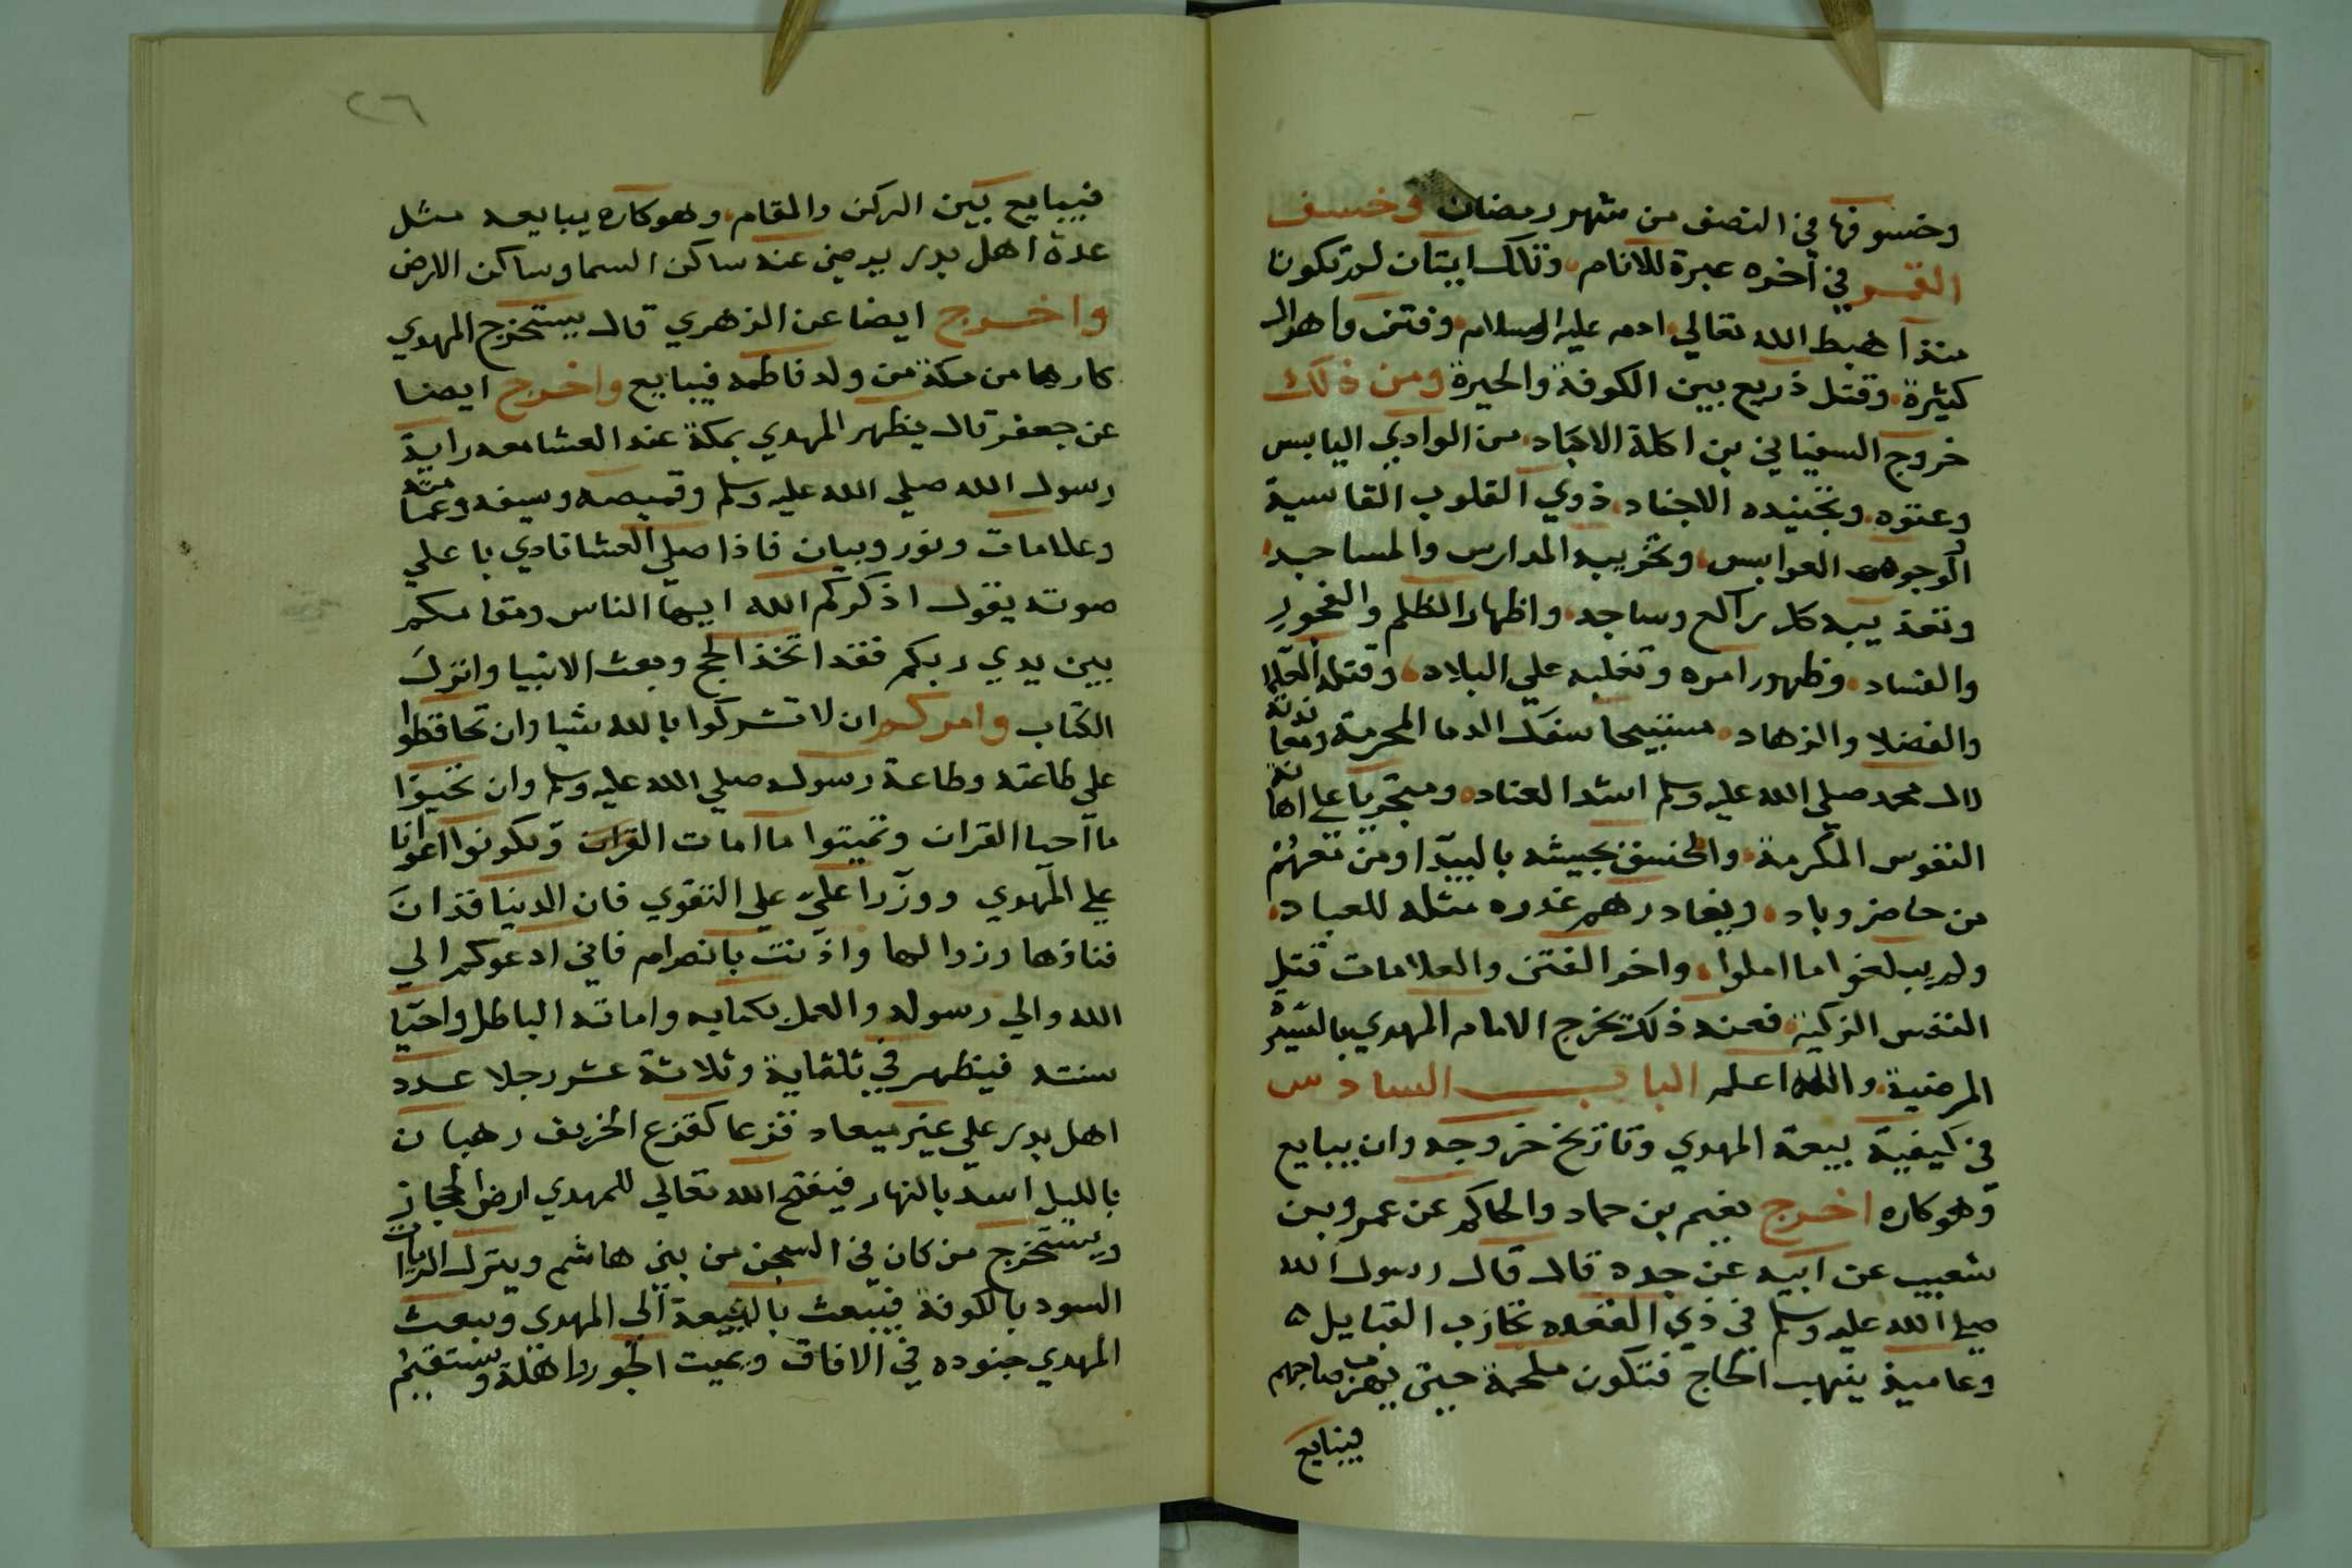 وخسوفها في النصف من شهر رمضان وخسف
القمر في آخره عبرة للانام وتلك ايتان لم تكونا
منذ اهبط الله تعالي ادم عليه السلام وفتن واهوال
كثيرة وقتل ذريع بين الكوفة والحيرة ومن ذلك
خروج السفياني بن اكلة الاكباد من الوادي اليابس
وعتوه وتجنيده الاجناد ذوي القلوب القاسية
والوجوه العوابس وتخريبه المدارس والمساجد
وتعذيبه كل راكع وساجد واظهار الظلم والفجور
والفساد وظهور امره وتغلبه علي البلاد وقتله العلما
والفضلا والزهاد مستبيحا سفك الدما المحرمة ومعاندته
لال محمد صلي الله عليه وسلم اشد العناد ومتجريا علي اهانة
النفوس المكرمة والخسف بجيشه بالبيدا ومن معهم
من حاضر وباد ويغادرهم غدره مثله للعباد
ولم يبلغوا ما املوا واخر الفتن والعلامات قتل
النفس الزكية فعند ذلك يخرج الامام المهدي بالسيرة
المرضية والله اعلم الباب السادس
في كيفية بيعة المهدي وتاريخ خروجه وان يبايع
وهو كاره اخرج نعيم بن حماد والحاكم عن عمرو بن
شعيب عن ابيه عن جده قال قال رسول الله
صلي الله عليه وسلم في ذي القعده تحازب القبايل
وعاميذ ينهب الحاج فتكون ملحمة حتي يهرب صاحبهم
فيبايع
٢٦
فيبايع بين الركن والمقام وهو كاره يبايعه مثل
عدة اهل بدر يرضي عنه ساكن السما وساكن الارض
واخرج ايضا عن الزهري قال يستخرج المهدي
كارها من مكة من ولد فاطمه فيبايع واخرج ايضا
عن جعفر قال يظهر المهدي بمكة عند العشا معه راية
رسول الله صلي الله عليه وسلم وقميصه وسيفه وعمامته
وعلامات ونور وبيان فاذا صلي العشا نادي با علي
صوته يقول اذكركم الله ايها الناس ومقامكم
بين يدي ربكم فقد اتخذ الحج وبعث الانبيا وانزل
الكتاب وامركم ان لا تشركوا بالله شيا وان تحافظوا
علي طاعته وطاعة رسوله صلي الله عليه وسلم وان تحيوا
ما احيا القران وتميتوا ما امات القران وتكونوا اعوانا
علي المهدي ووزرا علي علي التقوي فان الدنيا قد ان
فناؤها وزوالها واذنت بانصرام فاني ادعوكم الي
الله والي رسوله والعمل بكتابه واماتة الباطل واحيا
سنته فيظهر في ثلثماية وثلاثة عشر رجلا عدد
اهل بدر علي غير ميعاد قزعا كقزع الخريف رهبان
بالليل اسد بالنهار فيفتح الله تعالي للمهدي ارض الحجاز
ويستخرج من كان في السجن من بني هاشم وينزل الرايات
السود بالكوفة فيبعث بالبيعة الي المهدي ويبعث
المهدي جنوده في الافاق ويميت الجور واهله وتستقيم